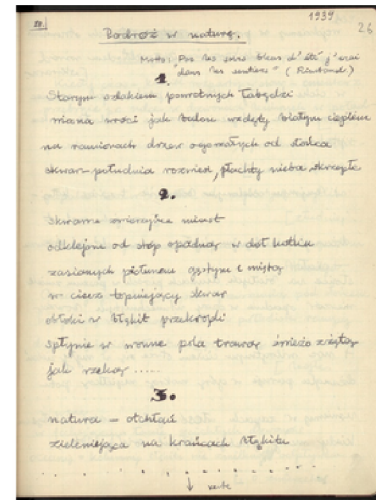 1939
26
Podróż w naturę.
Motto "Par les soirs bleus d'été j'irai
dans les sentiers" (Rimbaud)
1.
Starym szlakiem powrotnych łabędzi
wiosna wróci jak balon wzdęty białym ciepłem
na ramionach drzew ogorzałych od słońca
skwar południa rozwiesi płachty nieba skrzepłe
2.
skwarne miast
odklejone od stóp opadną w dół
zasianych piołunem gęstym i miętą
w ciszę topniejący skwar
obłoki w błękit
spłynie w równe pola trawą świeżo zżętą
jak rzeką .....
3.
natura = otchłań
zieleniejąca na krańcach błękitu
↓ verte